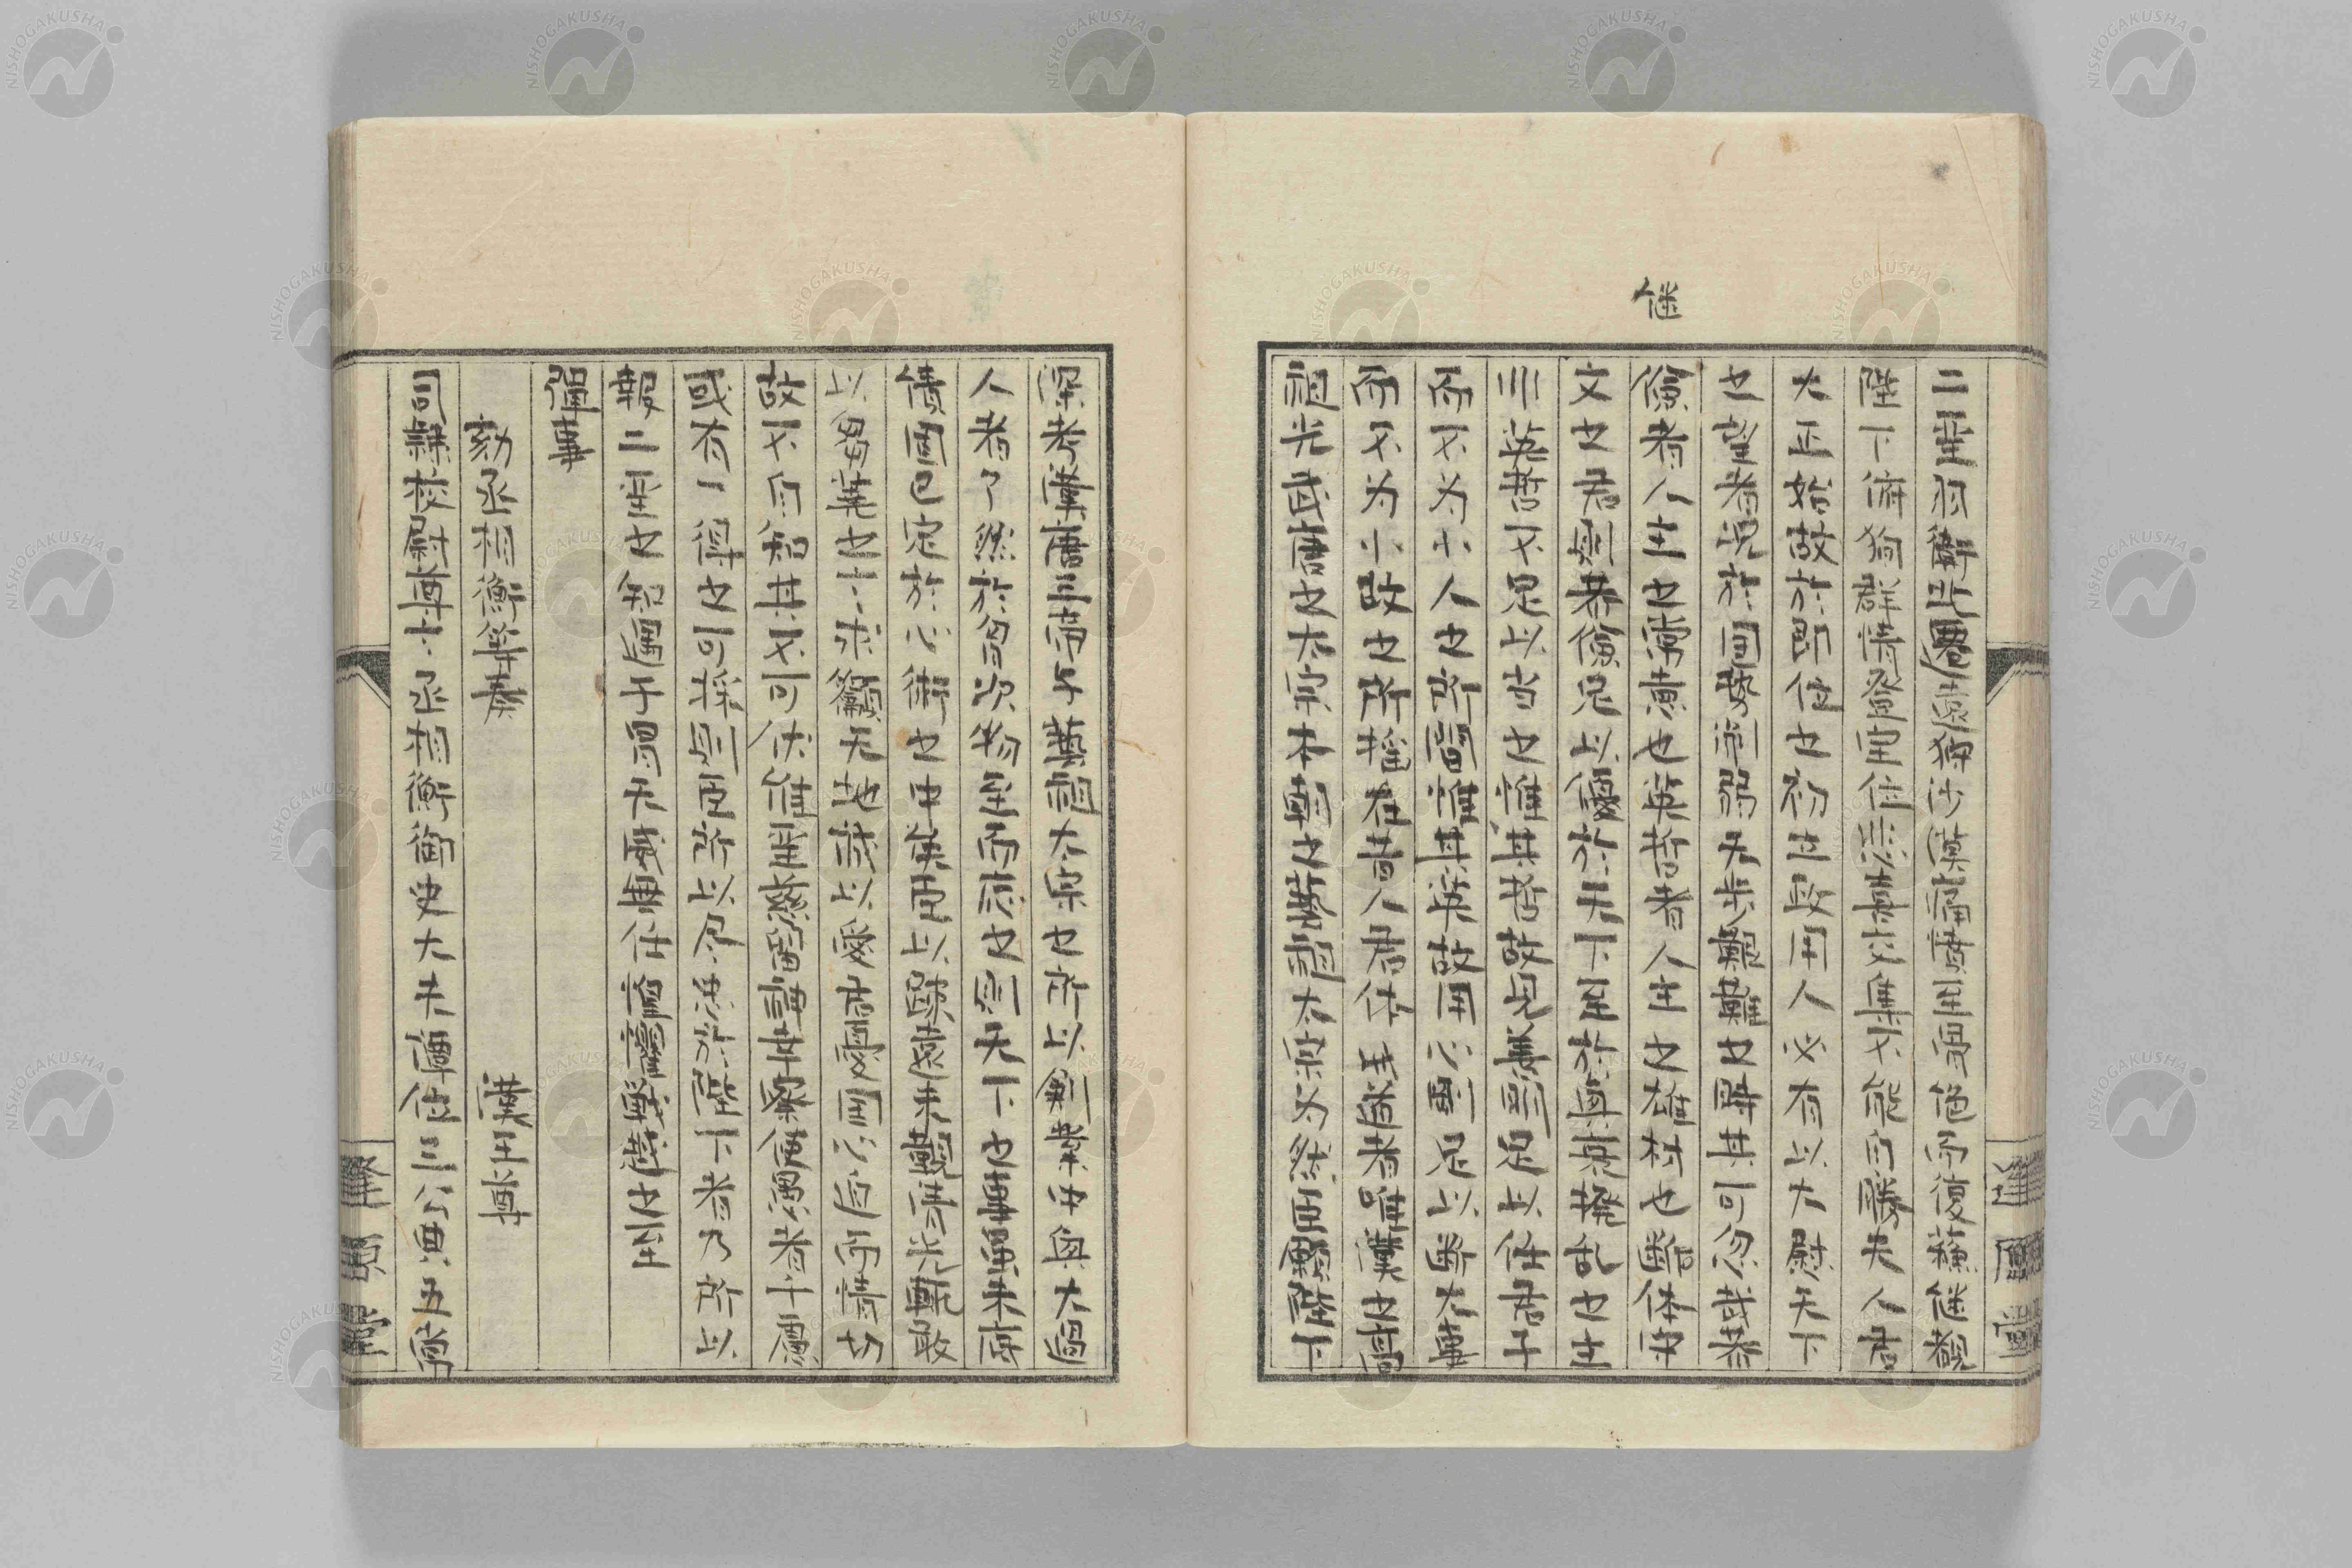 継
二聖羽衛北轅遠狩沙漠痛憤至骨絶而復蘇継覩
陛下俯狥群情登宝位悲喜交集不能自勝夫人君
大正始故於即位之初立政用人必有以大慰天下
之望者況於国勢削弱天歩艱難之際其可忽哉恭
倹者人主之常徳也英哲者人主之雄材也継体守
文之君則恭倹足以優於天下至於興衰撥乱之主
非英哲不足以当之惟其哲故見善明足以任君子
而不為小人之所間惟其英故用心剛足以断大事
而不為小故之所揺在昔人君体此道者唯漢之高
祖光武唐之太宗本朝之藝祖太宗為然臣願陛下
深考漢唐三帝与藝祖太宗之所以創業中興大過
人者了然於胸次物至而応之則天下之事無末
償固已定於心術之中矣臣以疎遠未覲清光輒敢
以芻蕘之言求籲天地誠以愛君憂国心迫而情切
故不自知其不可伏惟聖慈留神其察使愚者千慮
或有一得之可採則臣所以尽忠於陛下者乃所以
報二聖之知遇于冒天威無任懼戦越之至
弾事
劾丞相衡等奏　　漢王尊
司隷校尉尊言丞相衡御史大夫譚位三公典五常